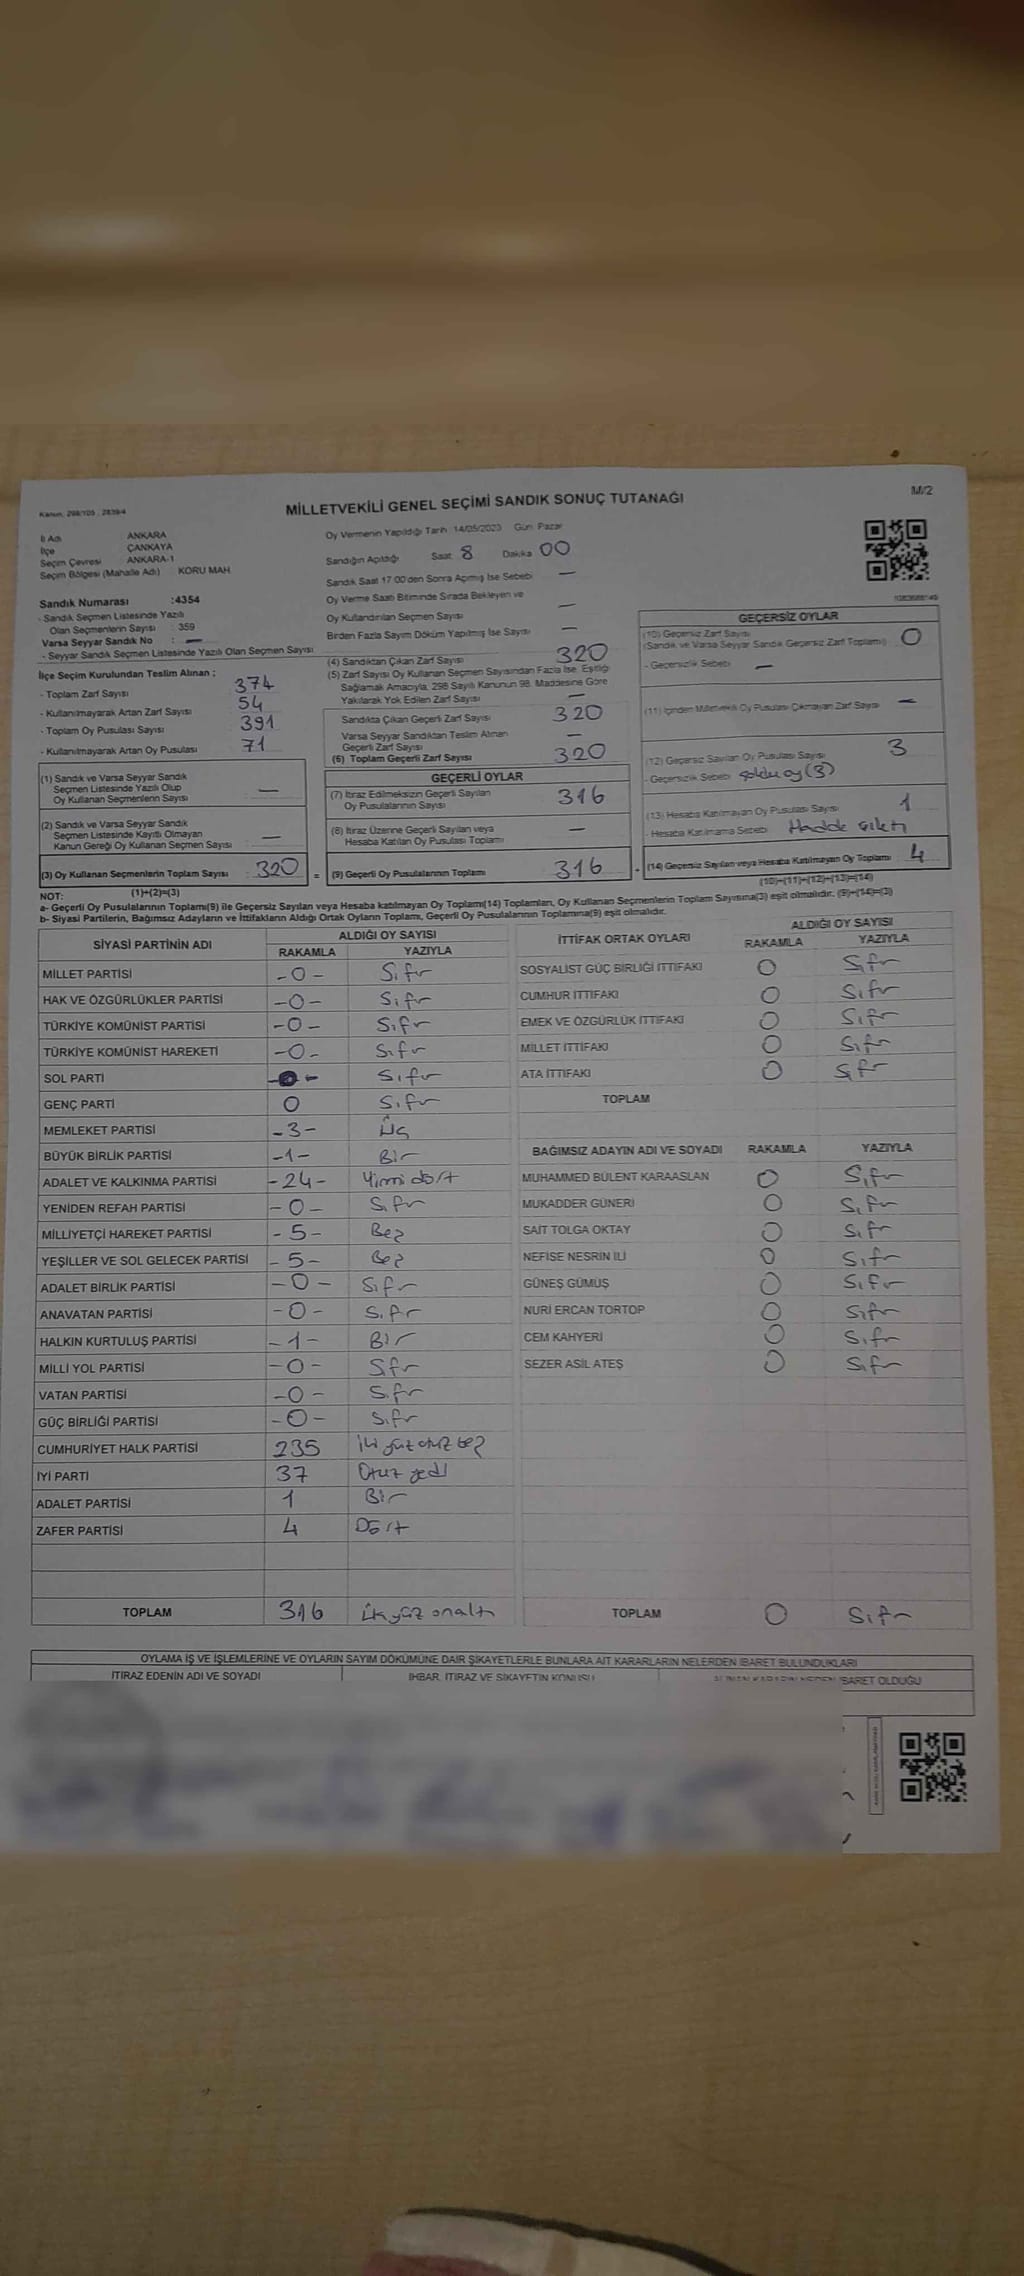 M/2
Kanun, 298/105 , 2839/4
MİLLETVEKİLİ GENEL SEÇİMİ SANDIK SONUÇ TUTANAĞI
İl Adı ANKARA
İlçe ÇANKAYA
Seçim Çevresi ANKARA-1
Seçim Bölgesi (Mahalle Adı) KORU MAH.
Sandık Numarası :4354
- Sandık Seçmen Listesinde Yazılı
Olan Seçmenlerin Sayısı : 359
Varsa Seyyar Sandık No : —
- Seyyar Sandık Seçmen Listesinde Yazılı Olan Seçmen Sayısı
İlçe Seçim Kurulundan Teslim Alınan ;
- Toplam Zarf Sayısı 374
- Kullanılmayarak Artan Zarf Sayısı 54
- Toplam Oy Pusulası Sayısı 391
- Kullanılmayarak Artan Oy Pusulası 71
(1) Sandık ve Varsa Seyyar Sandık
Seçmen Listesinde Yazılı Olup
Oy Kullanan Seçmenlerin Sayısı —
(2) Sandık ve Varsa Seyyar Sandık
Seçmen Listesinde Kayıtlı Olmayan
Kanun Gereği Oy Kullanan Seçmen Sayısı : —
(3) Oy Kullanan Seçmenlerin Toplam Sayısı : 320
(1)+(2)=(3)
Oy Vermenin Yapıldığı Tarih :14/05/2023 Gün: Pazar
Sandığın Açıldığı Saat 8 Dakika 00
Sandık Saat 17.00'den Sonra Açılmış İse Sebebi —
Oy Verme Saati Bitiminde Sırada Bekleyen ve
Oy Kullandırılan Seçmen Sayısı —
Birden Fazla Sayım Döküm Yapılmış İse Sayısı —
(4) Sandıktan Çıkan Zarf Sayısı 320
(5) Zarf Sayısı Oy Kullanan Seçmen Sayısından Fazla İse, Eşitliği
Sağlamak Amacıyla, 298 Sayılı Kanunun 98. Maddesine Göre
Yakılarak Yok Edilen Zarf Sayısı —
Sandıkta Çıkan Geçerli Zarf Sayısı 320
Varsa Seyyar Sandıktan Teslim Alınan
Geçerli Zarf Sayısı —
(6) Toplam Geçerli Zarf Sayısı 320
GEÇERLİ OYLAR
(7) İtiraz Edilmeksizin Geçerli Sayılan
Oy Pusulalarının Sayısı 316
(8) İtiraz Üzerine Geçerli Sayılan veya
Hesaba Katılan Oy Pusulası Toplamı —
= (9) Geçerli Oy Pusulalarının Toplamı 316
1083688149
GEÇERSİZ OYLAR
(10) Geçersiz Zarf Sayısı
(Sandık ve Varsa Seyyar Sandık Geçersiz Zarf Toplamı) 0
- Geçersizlik Sebebi —
(11) İçinden Milletvekili Oy Pusulası Çıkmayan Zarf Sayısı —
(12) Geçersiz Sayılan Oy Pusulası Sayısı 3
- Geçersizlik Sebebi oy (3)
(13) Hesaba Katılmayan Oy Pusulası Sayısı 1
- Hesaba Katılmama Sebebi
(14) Geçersiz Sayılan veya Hesaba Katılmayan Oy Toplamı 4
(10)+(11)+(12)+(13)=(14)
NOT:
a- Geçerli Oy Pusulalarının Toplamı(9) ile Geçersiz Sayılan veya Hesaba katılmayan Oy Toplamı(14) Toplamları, Oy Kullanan Seçmenlerin Toplam Sayısına(3) eşit olmalıdır. (9)+(14)=(3)
b- Siyasi Partilerin, Bağımsız Adayların ve İttifakların Aldığı Ortak Oyların Toplamı, Geçerli Oy Pusulalarının Toplamına(9) eşit olmalıdır.
SİYASİ PARTİNİN ADI ALDIĞI OY SAYISI
RAKAMLA YAZIYLA
MİLLET PARTİSİ -0- Sıfır
HAK VE ÖZGÜRLÜKLER PARTİSİ -0- Sıfır
TÜRKİYE KOMÜNİST PARTİSİ -0- Sıfır
TÜRKİYE KOMÜNİST HAREKETİ -0- Sıfır
SOL PARTİ -0- Sıfır
GENÇ PARTİ 0 Sıfır
MEMLEKET PARTİSİ -3- Üç
BÜYÜK BİRLİK PARTİSİ -1- Bir
ADALET VE KALKINMA PARTİSİ -24- Yirmi dört
YENİDEN REFAH PARTİSİ -0- Sıfır
MİLLİYETÇİ HAREKET PARTİSİ -5- Beş
YEŞİLLER VE SOL GELECEK PARTİSİ -5- Beş
ADALET BİRLİK PARTİSİ -0- Sıfır
ANAVATAN PARTİSİ -0- Sıfır
HALKIN KURTULUŞ PARTİSİ -1- Bir
MİLLİ YOL PARTİSİ -0- Sıfır
VATAN PARTİSİ -0- Sıfır
GÜÇ BİRLİĞİ PARTİSİ -0- Sıfır
CUMHURİYET HALK PARTİSİ 235 İki yüz otuz beş
İYİ PARTİ 37 Otuz yedi
ADALET PARTİSİ 1 Bir
ZAFER PARTİSİ 4 Dört
TOPLAM 316 Üç yüz onaltı
İTTİFAK ORTAK OYLARI ALDIĞI OY SAYISI
RAKAMLA YAZIYLA
SOSYALİST GÜÇ BİRLİĞİ İTTİFAKI 0 Sıfır
CUMHUR İTTİFAKI 0 Sıfır
EMEK VE ÖZGÜRLÜK İTTİFAKI 0 Sıfır
MİLLET İTTİFAKI 0 Sıfır
ATA İTTİFAKI 0 Sıfır
TOPLAM
BAĞIMSIZ ADAYIN ADI VE SOYADI RAKAMLA YAZIYLA
MUHAMMED BÜLENT KARAASLAN 0 Sıfır
MUKADDER GÜNERİ 0 Sıfır
SAİT TOLGA OKTAY 0 Sıfır
NEFİSE NESRİN İLİ 0 Sıfır
GÜNEŞ GÜMÜŞ 0 Sıfır
NURİ ERCAN TORTOP 0 Sıfır
CEM KAHYERİ 0 Sıfır
SEZER ASİL ATEŞ 0 Sıfır
TOPLAM 0 Sıfır
OYLAMA İŞ VE İŞLEMLERİNE VE OYLARIN SAYIM DÖKÜMÜNE DAİR ŞİKAYETLERLE BUNLARA AİT KARARLARIN NELERDEN İBARET BULUNDUKLARI
İTİRAZ EDENİN ADI VE SOYADI İHBAR, İTİRAZ VE ŞİKAYETİN KONUSU ALINAN KARARIN NEDEN İBARET OLDUĞU